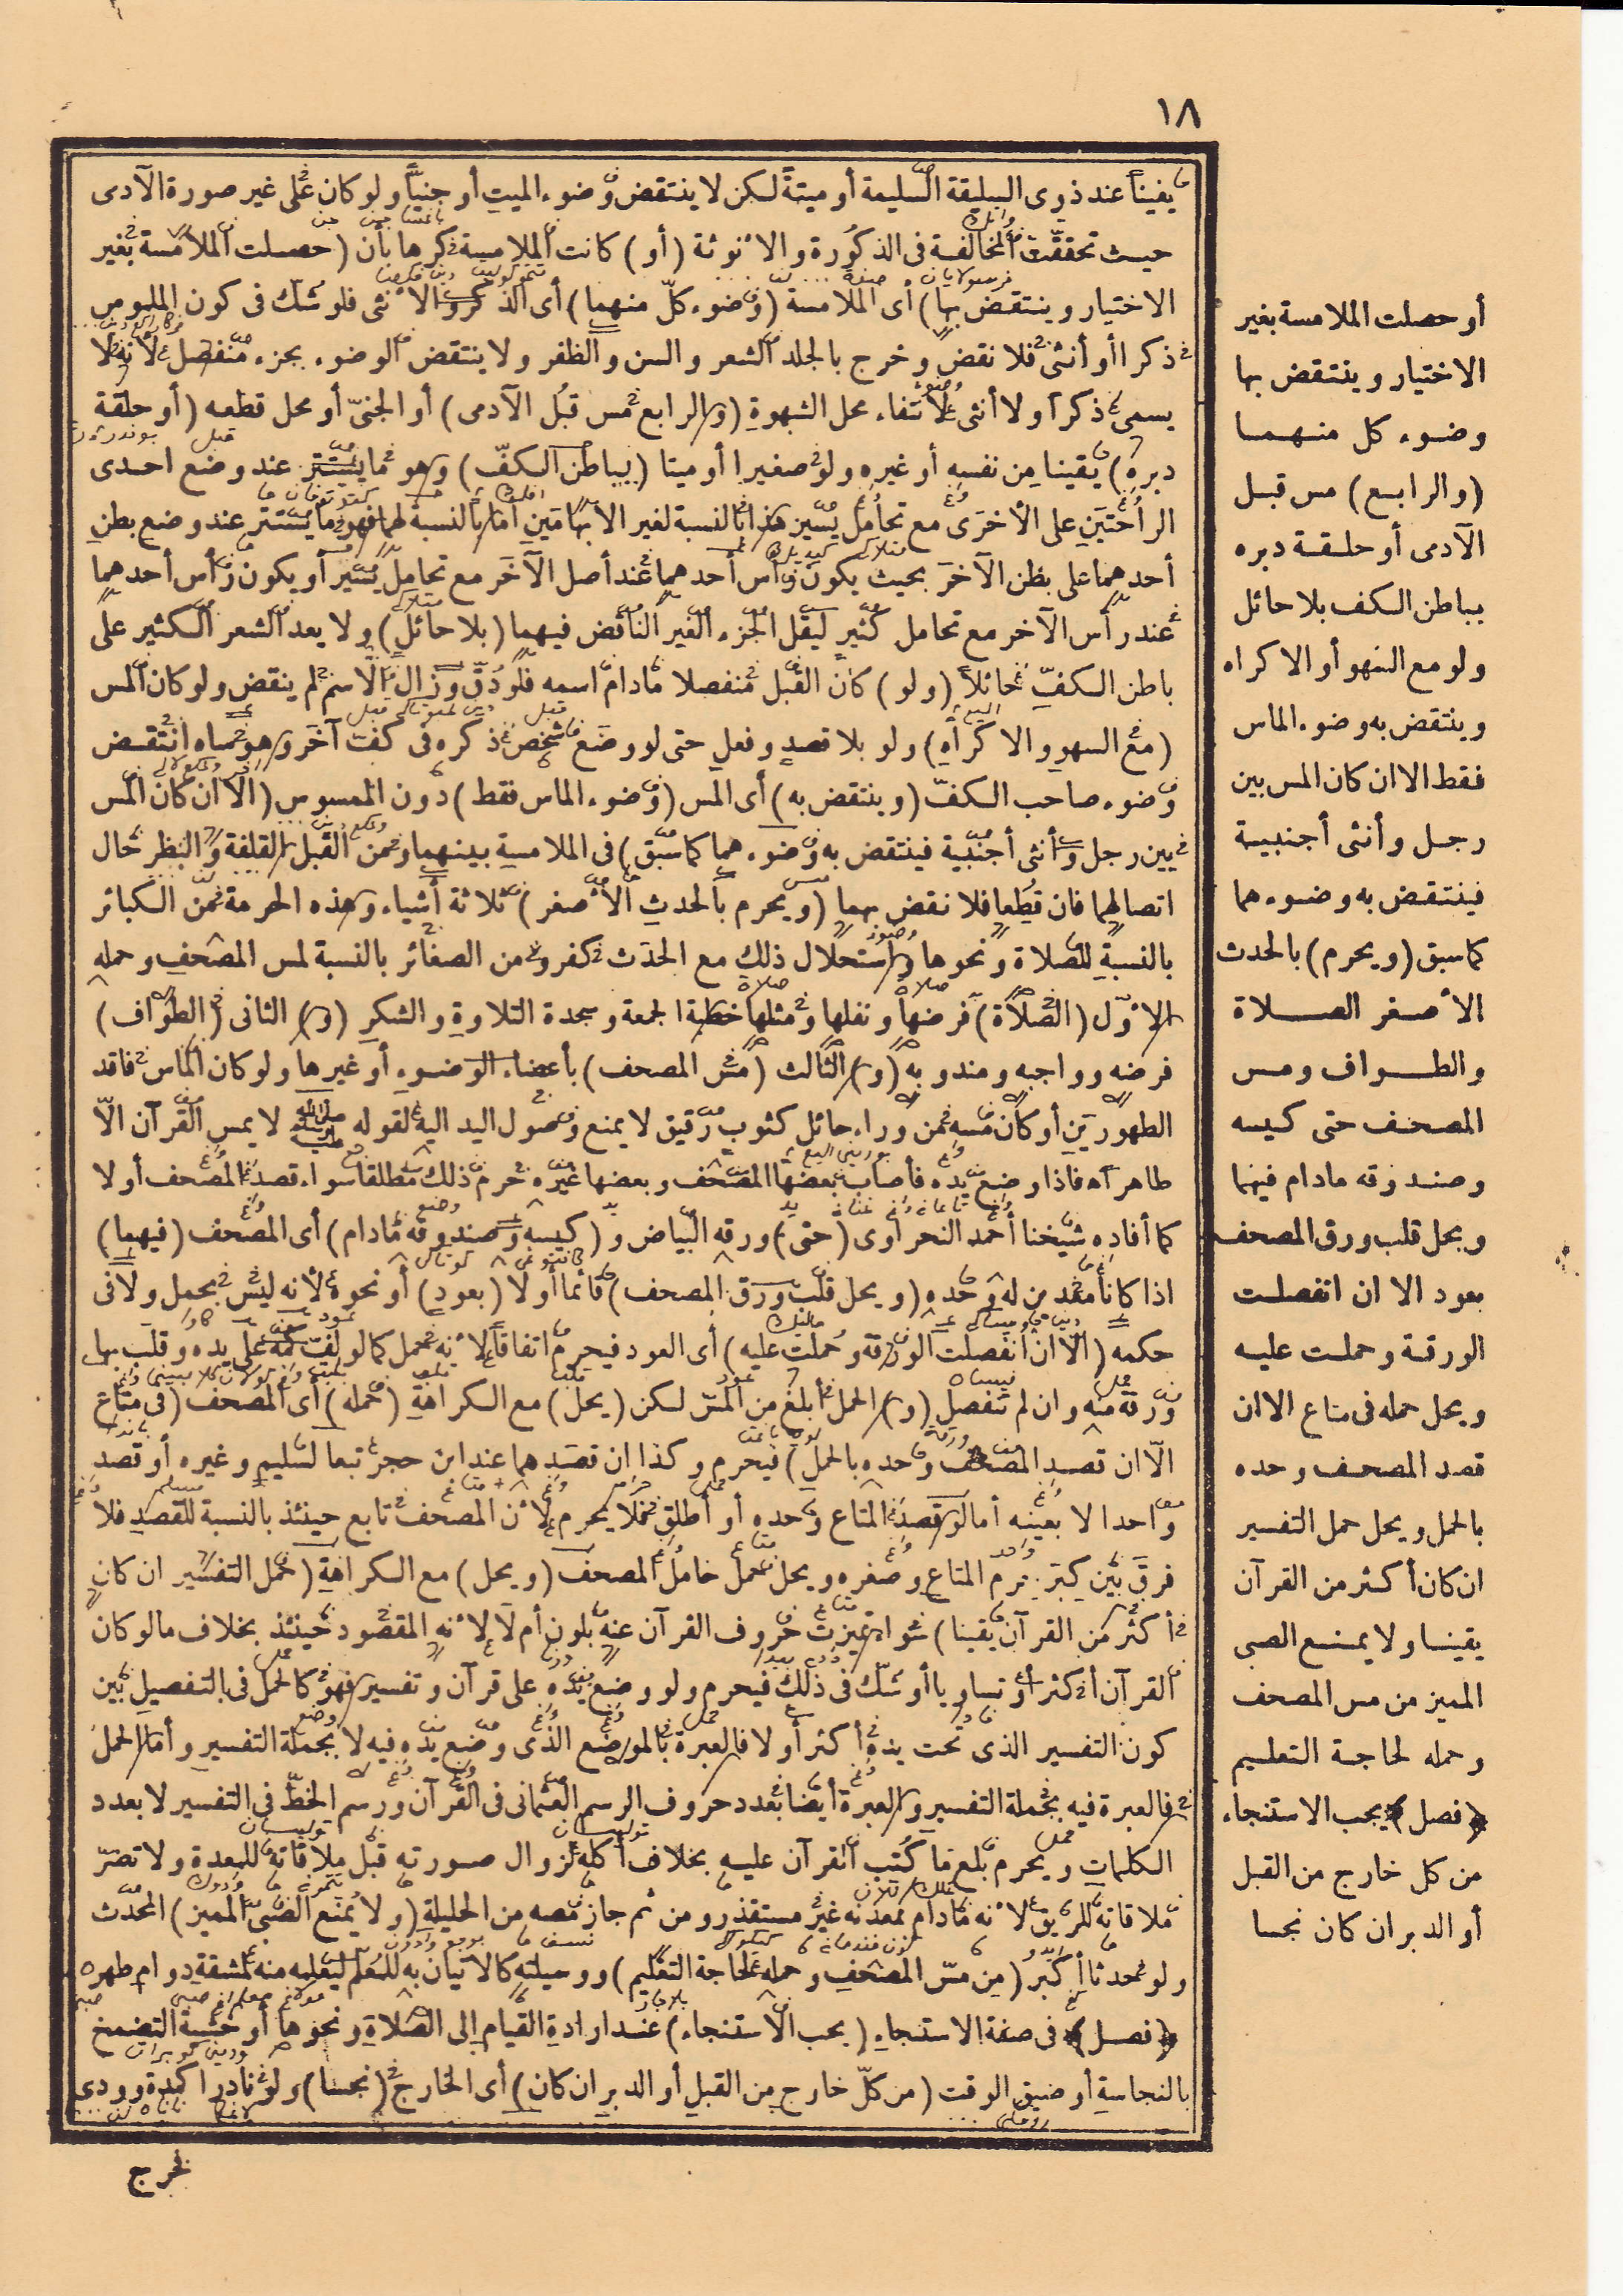 ١٨
يقينا عند ذوى السليقة السليمة أو ميتة لكن لا ينتقض وضوء الميت أو جنيا ولو كان على غير صورة الآدمى
حيث تحققت المخالفة فى الذكورة والأنوثة (أو) كانت الملامسة كرها بأن (حصلت الملامسة بغير
الاختيار وينتقض بها) أى الملامسة (وضوء كل منهما) أى الذكر والأنثى فلو شك فى كون الملموس
ذكرا أو أنثى فلا نقض وخرج بالجلد الشعر والسن والظفر ولا ينتقض الوضوء بجزء منفصل لأنه لا
يسمى ذكرا ولا أنثى لانتفاء محل الشهوة (و) الرابع (مس قبل الآدمى) أو الجنى أو محل قطعه (أو حلقة
دبره) يقينا من نفسه أو غيره ولو صغيرا أو ميتا (بباطن الكف) وهو ما يستتر عند وضع احدى
الراحتين على الأخرى مع تحامل يسير هذا بالنسبة لغير الابهامين أما بالنسبة لهما فهو ما يستتر عند وضع بطن
أحدهما على بطن الآخر بحيث يكون رأس أحدهما عند أصل الآخر مع تحامل يسير أو يكون رأس أحدهما
عند رأس الآخر مع تحامل كثير ليقل الجزء الغير الناقض فيهما (بلا حائل) ولا يعد الشعر الكثير على
باطن الكف حائلا (ولو) كان القبل منفصلا مادام اسمه فلو دق وزال الاسم لم ينقض ولو كان المس
(مع السهو والاكراه) ولو بلا قصد وفعل حتى لو وضع شخص ذكره فى كف آخر وهو ساه انتقض
وضوء صاحب الكف (وينتقض به) أى المس (وضوء الماس فقط) دون الممسوس (الا ان كان المس
بين رجل وأنثى أجنبية فينتقض به وضوءهما كما سبق) فى الملامسة بينهما ومن القبل القلفة والبظر حال
اتصالهما فان قطعا فلا نقض بهما (ويحرم بالحدث الأصغر) ثلاثة أشياء وهذه الحرمة من الكبائر
بالنسبة للصلاة ونحوها واستحلال ذلك مع الحدث كفر ومن الصغائر بالنسبة لمس المصحف وحمله
الأول (الصلاة) فرضها ونفلها ومثلها خطبة الجمعة وسجدة التلاوة والشكر (و) الثانى (الطواف)
فرضه وواجبه ومندوبه (و) الثالث (مس المصحف) بأعضاء الوضوء أو غيرها ولو كان الماس فاقد
الطهورين أو كان مسه من وراء حائل كثوب رقيق لا يمنع وصول اليد اليه لقوله صلى الله عليه وسلم لا يمس القرآن الا
طاهر اه فاذا وضع يده فأصاب بعضها المصحف وبعضها غيره حرم ذلك مطلقا سواء قصد المصحف أولا
كما أفاده شيخنا أحمد النحراوى (حتى) ورقه البياض و(كيسه وصندوقه مادام) أى المصحف (فيهما)
اذا كانا معدين له وحده (ويحل قلب ورق المصحف) قائما أولا (بعود) أو نحوه لأنه ليس بحمل ولا فى
حكمه (الا ان انفصلت الورقة وحملت عليه) أى العود فيحرم اتفاقا لأنه حمل كما لو لف كمه على يده وقلب بها
ورقة منه وان لم تنفصل (و) الحمل أبلغ من المس لكن (يحل) مع الكراهة (حمله) أى المصحف (فى متاع
الا ان قصد المصحف وحده بالحمل) فيحرم وكذا ان قصدهما عند ابن حجر تبعا لسليم وغيره أو قصد
واحدا لا بعينه أما لو قصد المتاع وحده أو أطلق فلا يحرم لأن المصحف تابع حينئذ بالنسبة للقصد فلا
فرق بين كبر جرم المتاع وصغره ويحل حمل حامل المصحف (ويحل) مع الكراهة (حمل التفسير ان كان
أكثر من القرآن يقينا) سواء تميزت حروف القرآن عنه بلون أم لا لأنه المقصود حينئذ بخلاف ما لو كان
القرآن أكثر أو تساويا أو شك فى ذلك فيحرم ولو وضع يده على قرآن وتفسير فهو كالحمل فى التفصيل بين
كون التفسير الذى تحت يده أكثر أولا فالعبرة بالموضع الذى وضع يده فيه لا بجملة التفسير وأما الحمل
فالعبرة فيه بجملة التفسير والعبرة أيضا بعدد حروف الرسم العثمانى فى القرآن ورسم الخط فى التفسير لا بعدد
الكلمات ويحرم بلع ما كتب القرآن عليه بخلاف أكله لزوال صورته قبل ملاقاته للمعدة ولا تضر
ملاقاته للريق لأنه مادام بمعدنه غير مستقذر ومن ثم جاز مصه من الحليلة (ولا يمنع الصبى المميز) المحدث
ولو محدثا أكبر (من مس المصحف وحمله لحاجة التعليم) ووسيلته كالاتيان به للمعلم ليعلمه منه لمشقة دوام طهره
﴿فصل﴾ فى صفة الاستنجاء (يجب الاستنجاء) عند ارادة القيام إلى الصلاة ونحوها أو خشية التضمخ
بالنجاسة أو ضيق الوقت (من كل خارج من القبل أو الدبر ان كان) أى الخارج (نجسا) ولو نادرا كدم وودى
فخرج
أو حصلت الملامسة بغير
الاختيار وينتقض بها
وضوء كل منهما
(والرابع) مس قبل
الآدمى أو حلقة دبره
بباطن الكف بلا حائل
ولو مع السهو أو الاكراه
وينتقض به وضوء الماس
فقط الا ان كان المس بين
رجل وأنثى أجنبية
فينتقض به وضوءهما
كما سبق (ويحرم) بالحدث
الأصغر الصلاة
والطواف ومس
المصحف حتى كيسه
وصندوقه مادام فيهما
ويحل قلب ورق المصحف
بعود الا ان انفصلت
الورقة وحملت عليه
ويحل حمله فى متاع الا ان
قصد المصحف وحده
بالحمل ويحل حمل التفسير
ان كان أكثر من القرآن
يقينا ولا يمنع الصبى
المميز من مس المصحف
وحمله لحاجة التعليم
﴿فصل﴾ يجب الاستنجاء
من كل خارج من القبل
أو الدبر ان كان نجسا